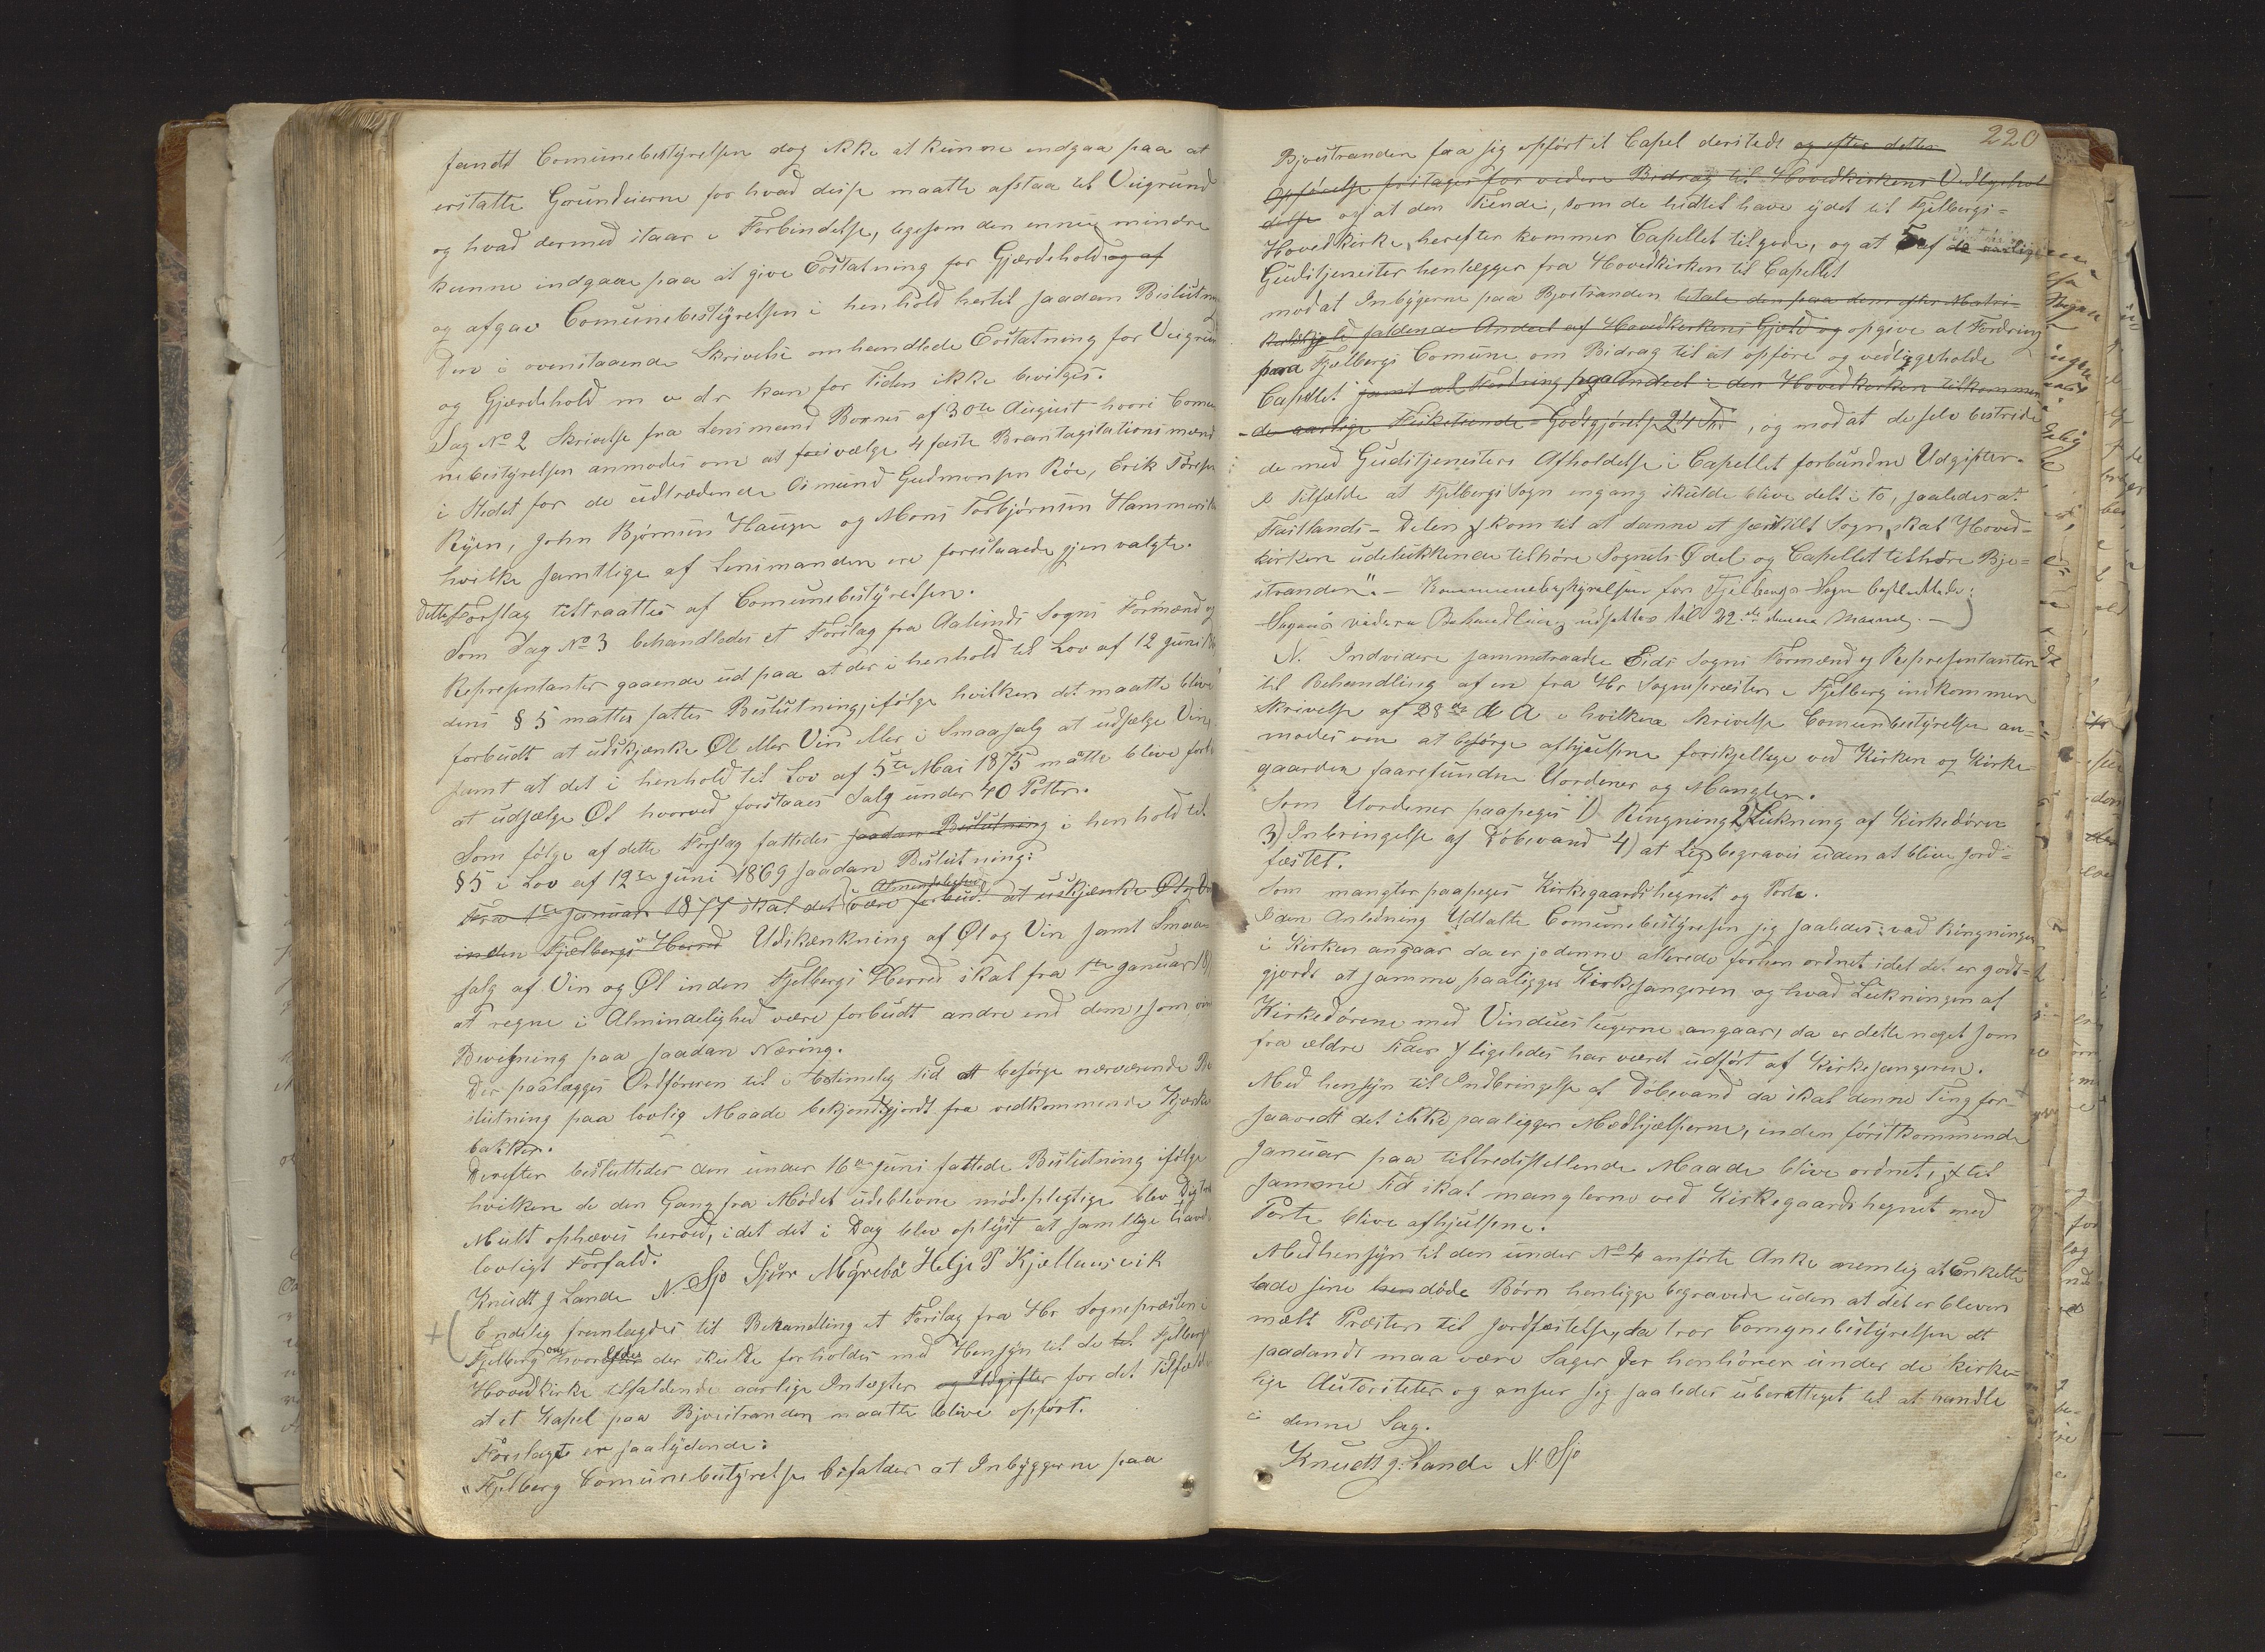 fandt Comunebestyrelsen dog ikke at kunne indgaa paa at
erstatte Grundeierne for hvad disse maatte afstaa til Veigrund
og hvad dermed staar i Forbindelse, ligesom den ennu mindre
kunne indgaa paa at give Erstatning for Gjærdehold og af
og afgav Comunebestyrelsen i henhold hertil saadan Beslutn
Den i ovenstaaende Skrivelse omhandlede Erstatning for Veigrun
og Gjærdehold m v dr kan for Tiden ikke bevilges.
Sag No 2 Skrivelse fra Lensmand Bornes af 30te August hvori Comu
nebestyrelsen anmodes om at vælge 4 faste Brantagstationsmænd
i Stedet for de udtrædende Osmund Gudmonsen Røe, Erik Tøresen
Ryen, John Bjørnsen Haugen og Mons Torbjørnsen Hammersl
hvilke samtlige af Lensmanden ere foreslaaede gjenvalgte.
Dette Forslag tiltraattes af Comunebestyrelsen.
Som Sag No 3 behandledes et Forslag fra Aalunds Sogns Formænd og
Repræsentanter gaaende ud paa at der i henhold til Lov af 12 Juni 18
dens § 5 mattes fattes Beslutning, ifølge hvilken det maatte blive
forbudt at udskjænke Øl eller Vin eller i Smaasalg at udsælge Vin,
samt at det i henhold til Lov af 5te Mai 1875 måtte blive forb
at udsælge Øl hvorved forstaaes Salg under 40 Potter.
Som følge af dette Forslag fattedes saadan Beslutning i henhold til
§ 5 i Lov af 12te Juni 1869 saadan Beslutning:
Fra 1te Januar 1877 skal det være forbudt at udskjænke Øl og Vin
inden Fjælbergs Herred Udskænkning af Øl og Vin samt Smaa
salg af Vin og Øl inden Fjelbergs Herred skal fra 1te Januar 18
at regne i Almindelighed være forbudt andre end dem, som
Bevisning paa saadan Næring.
Der paalægges Ordføreren til i betimelig tid at besørge nærværende Be
slutning paa lovlig Maade bekjendtgjordt fra vedkommende Kjørke
bakker.
Derefter besluttedes den under 16de Juni fattede Beslutning ifølge
hvilken de den Gang fra Mødet udeblevne mødepligtige blev Digt
Mult ophæves herved, idet det i Dag blev oplyst at samtlige havd
lovligt Forfald.
Knudt J Lande N. Sjo Sjur Myrebø Helje P Kjellesvik
Endelig fremlagdes til Behandling et Forslag fra Hr Sognepræsten i
Fjelberg om hvorledes der skulde forholdes med Hensyn til de til Fjelbergs
Hovedkirke tilfaldende aarlige Intægter og Udgifter for det Tilfælde
at et Kapel paa Bjoestranden maatte blive opført.
Forslaget er saalydende:
"Fjelberg Comunebestyrelse befalder at Inbyggerne paa
220
Bjoestranden faa sig opført et Capel dersteds og efter dettes
Opførelse fritages for videre Bidrag til Hovedkirkens Vedligehol
delse og at den Tiende, som de hidtil have ydet til Fjelbergs-
Hovedkirke, herefter kommer Capellet tilgode, og at 5 af de aarlige
Gudstjenester henlægges fra Hovedkirken til Capellet
mod at Inbygerne paa Bjoestranden betale den paa dem efter Matri-
kulskyld faldende Andeel af Hovedkirkens Gjæld og opgive al Fordring
paa Fjelbergs Comune om Bidrag til at opføre og vedligeholde
Capellet samt al Fordring paa Andeel i den Hovedkirken tilkommen
de aarlige Fisketiende-Godtgjørelse 24 Sp , og mod at de selv bestride
de med Gudstjenesters Afholdelse i Capellet forbundne Udgifter.
I Tilfælde at Fjelbergs Sogn engang skulde blive delt i to, saaledes at
Fastlands-Delen kom til at danne et særskilt Sogn, skal Hoved-
kirken udelukkende tilhøre Sognets Ø del og Capellet tilhøre Bjo-
stranden". - Kommunebestyrelsen for Fjelbergs Sogn besluttede:
Sagens videre Behandling udsættes til 22de denne Maaned. -
N. Indvidere sammetraadte Eids Sogns Formænd og Repræsentanter
til Behandling af en fra Hr Sognepræsten i Fjelberg indkommen
Skrivelse af 28de d A i hvilken Skrivelse Comunbestyrelsen an-
modes om at besørge afhjulpne forskjellige ved Kirken og Kirke-
gaarden saarefundne Uordener og Mangler.
Som Uordener paapeges 1) Ringning 2) Lukning af Kirkedøren
3) Inbringelse af Døbevand 4) at Lig begraves uden at blive jord-
fæstet.
Som mangler paapeges Kirkegaardshegnet og Porte.
I den Anledning Udtalte Comunebestyresen sig saaledes: vad Ringningen
i Kirken angaar da er jo denne allerede forhen ordnet idet det er godt-
gjordt at samme paaligger Kirkesangeren og hvad Lukningen af
Kirkedørene med Vindueslugerne angaar, da er dette noget som
fra ældre Tider ligeledes har været udført af Kirkesangeren.
Med hensyn til Indbringelse af Døbevand da skal denne Ting for-
saavidt det ikke paaligger Medhjælperne, inden førstkommende
Januar paa tilfredsstellende Maade blive ordnet, til
samme Tid skal manglerne ved Kirkegaardshegnet med
Porte blive afhjulpne.
Medhensyn til den under No 4 anførte Anke nemlig at Enkelte
lade sine døde Børn henligge begravede uden at det er bleven
mælt Præsten til Jordfæstelse, da tror Comunebestyrelsen at
saadandt maa være Sager der henhører under de kirke-
lige Autoriteter og anser sig saaledes uberettiget til at handle
i denne Sag.
Knudt J. Lande N. Sjo